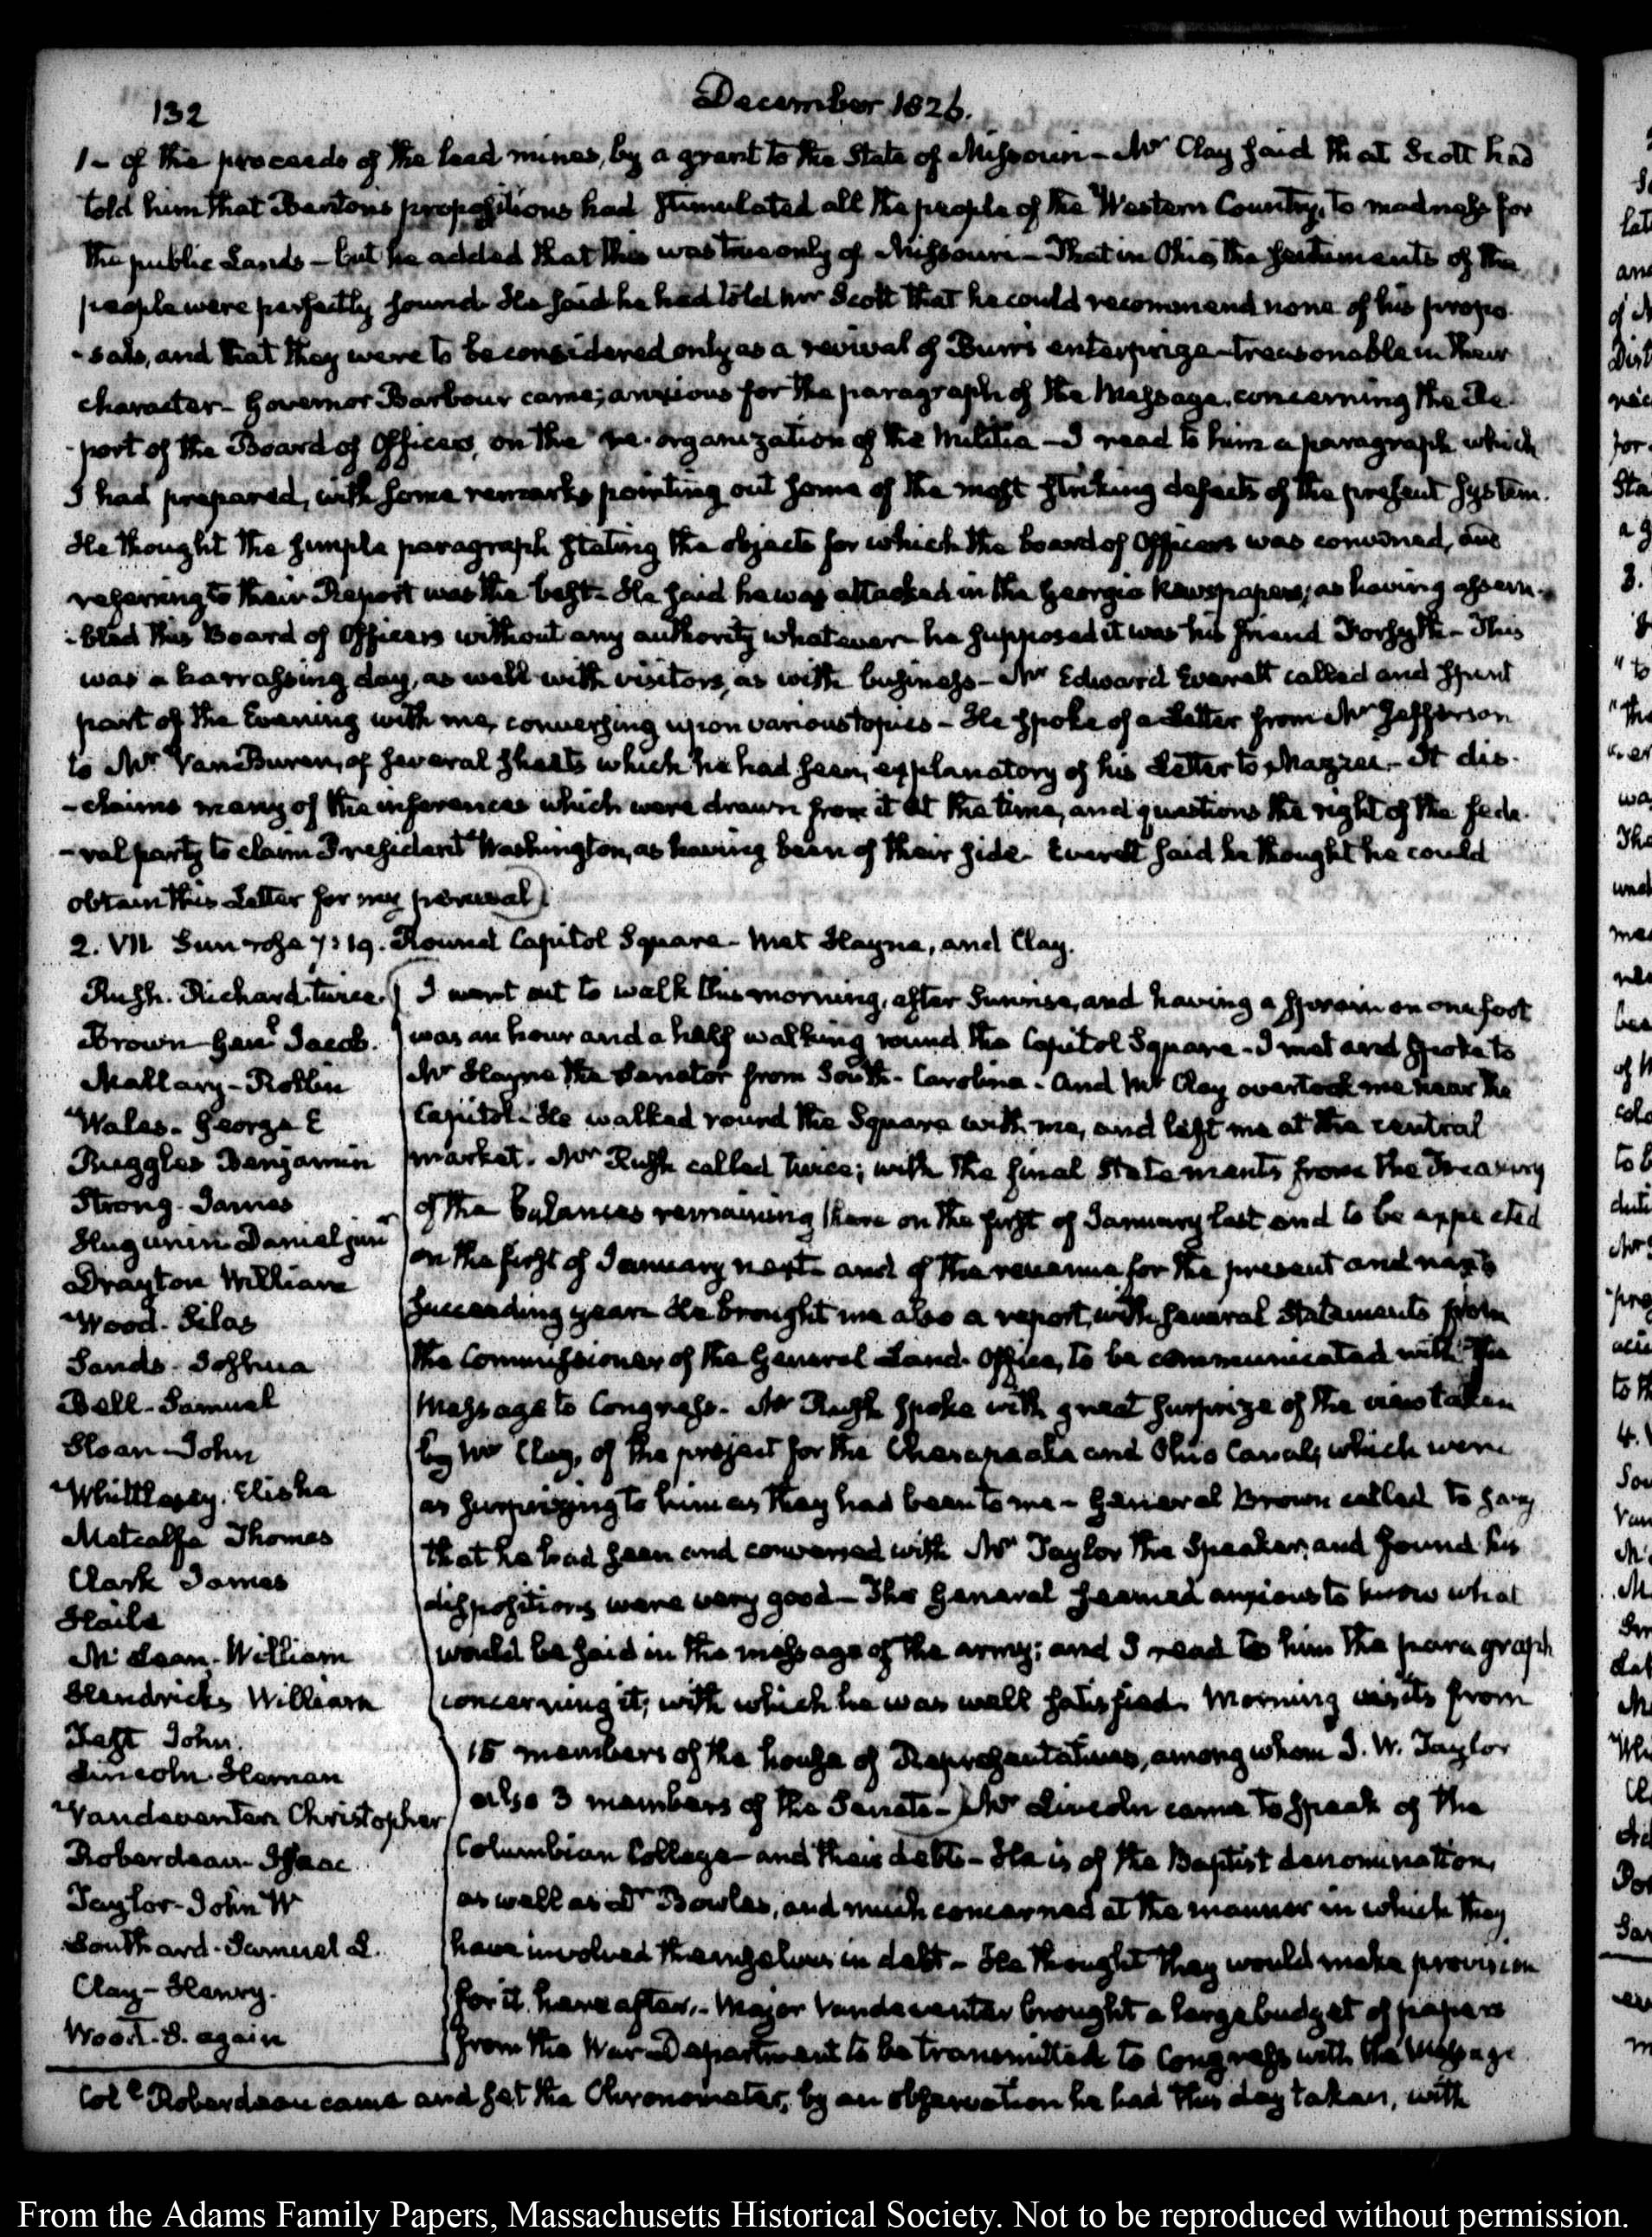 132
December 1826.
1~ of the proceeds of the lead mines, by a grant to the State of Missouri – Mr Clay said that Scott had
told him that Barton's propositions had stimulated all the people of the Western Country, to madness for
the public Lands – but he added that this was true only of Missouri – That in Ohio, the sentiments of the
people were perfectly sound. He said he had told Mr Scott that he could recommend none of his propo-
-sals, and that they were to be considered only as a revival of Burr's enterprize – treasonable in their
character – Governor Barbour came; anxious for the paragraph of the Message, concerning the Re-
-port of the Board of Officers, on the re-organization of the Militia – I read to him a paragraph which
I had prepared, with some remarks pointing out some of the most striking defects of the present system.
He thought the simple paragraph stating the objects for which the board of Officers was convened, and
referring to their Report was the best – He said he was attacked in the Georgia Newspapers; as having assem-
-bled this Board of Officers without any authority whatever – he supposed it was his friend Forsyth – This
was a harrassing day, as well with visitors, as with business – Mr Edward Everett called and spent
part of the Evening with me, conversing upon various topics – He spoke of a Letter from Mr Jefferson
to Mr Van Buren, of several sheets which he had seen, explanatory of his Letter to Mazzei. – It dis-
-claims many of the inferences which were drawn from it at the time, and questions the right of the fede-
-ral party to claim President Washington, as having been of their side. Everett said he thought he could
obtain this Letter for my perusal)
2. VII. Sun rose 7:19. Round Capitol Square – Met Hayne, and Clay.
Rush. Richard. twice.
Brown – Genl. Jacob.
Mallary – Rollin
Wales – George E
Ruggles Benjamin
Strong – James
Hugunin Daniel junr
Drayton William
Wood – Silas
Sands – Joshua
Bell – Samuel
Sloan – John
Whittlesey. Elisha
Metcalfe Thomas
Clark James
Haile
McLean – William
Hendricks William
Test John.
Lincoln Heman
Vandeventer Christopher
Roberdeau – Isaac
Taylor – John W
Southard – Samuel L.
Clay – Henry.
Wood. S. again
(I went out to walk this morning, after Sunrise, and having a sprain on one foot
was an hour and a half walking round the Capitol Square – I met and spoke to
Mr Hayne the Senator from South-Carolina – And Mr Clay overtook me near the
Capitol. He walked round the Square with me, and left me at the central
market. Mr Rush called twice; with the final statements from the Treasury
of the balances remaining there on the first of January last, and to be expected
on the first of January next – and of the revenue for the present and next
succeeding year. He brought me also a report, with several statements from
the Commissioner of the General Land-Office, to be communicated with the
Message to Congress – Mr Rush spoke with great surprize of the views taken
by Mr Clay, of the project for the Chesapeake and Ohio Canal, which were
as surprizing to him as they had been to me – General Brown called to say
that he had seen and conversed with Mr Taylor the Speaker, and found his
dispositions were very good – The General seemed anxious to know what
would be said in the message of the army; and I read to him the paragraph
concerning it; with which he was well satisfied. Morning visits from
15 members of the house of Representatives, among whom J. W. Taylor
also 3 members of the Senate –) Mr Lincoln came to speak of the
Columbian College – and their debts – He is of the Baptist denomination,
as well as Dr Bowles, and much concerned at the manner in which they
have involved themselves in debt – He thought they would make provision
for it hereafter. – Major Vandeventer brought a large budget of papers
from the War Department to be transmitted to Congress with the Message
Coll Roberdeau came and set the Chronometer, by an observation he had this day taken, with
From the Adams Family Papers, Massachusetts Historical Society. Not to be reproduced without permission.